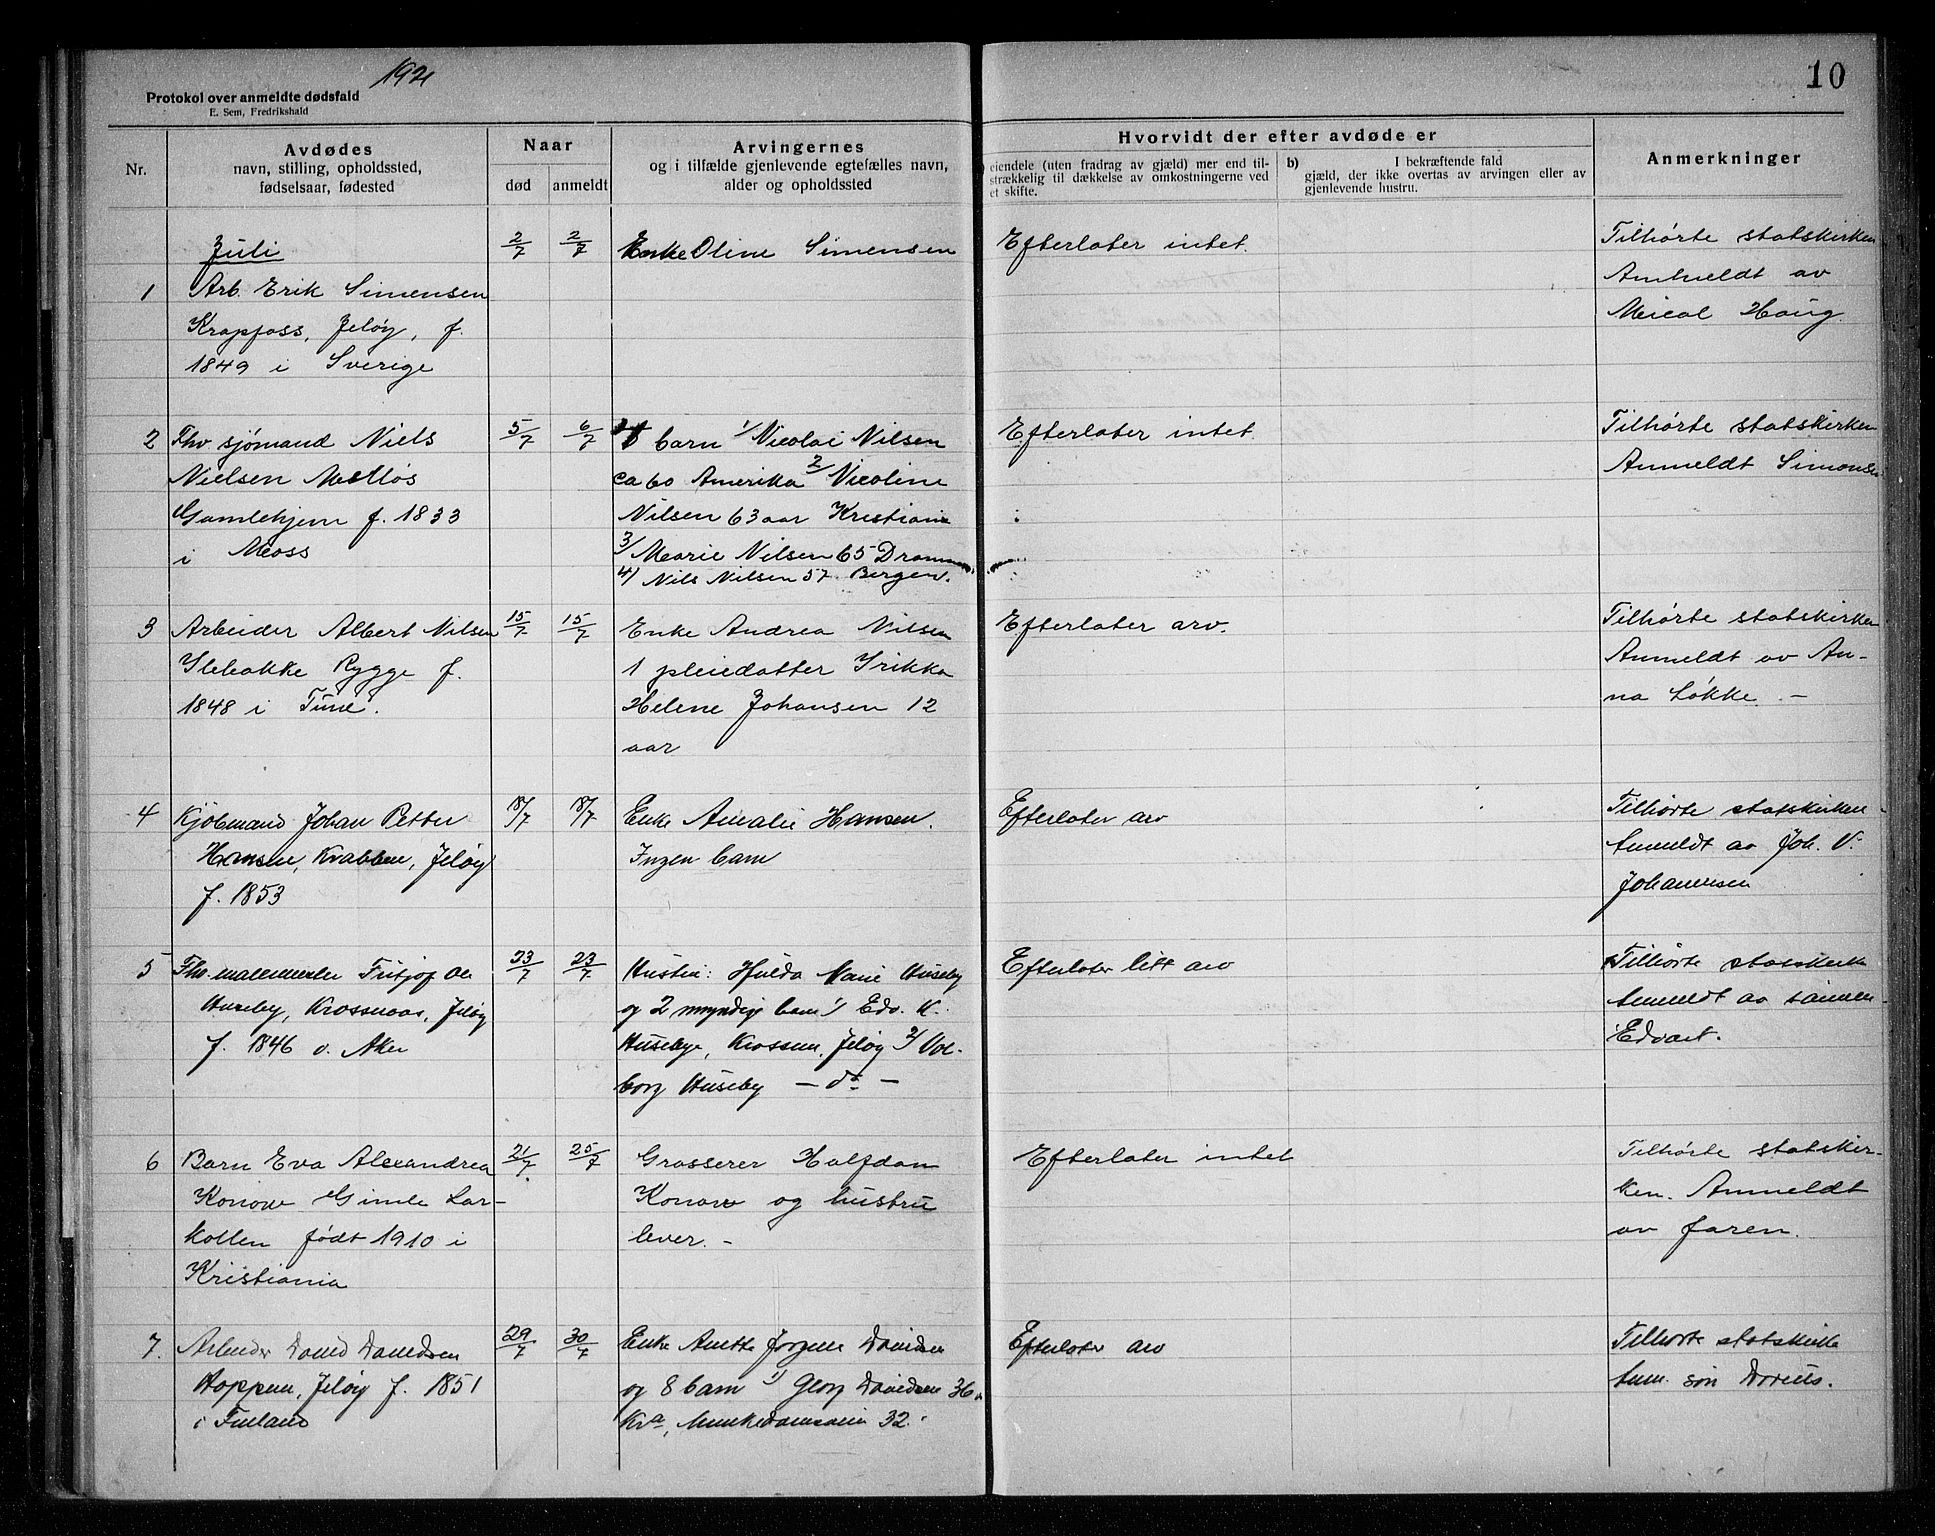 1921
10
Protokol over anmeldte dødsfald
E. Sem, Fredrikshald
Nr.
Avdødes
navn, stilling, opholdssted,
fødselsaar, fødested
Naar
død
anmeldt
Arvingernes
og i tilfælde gjenlevende egtefælles navn,
alder og opholdssted
Hvorvidt der efter avdøde er
eiendele (uten fradrag av gjæld) mer end til-
strækkelig til dækkelse av omkostningerne ved
et skifte.
b) I bekræftende fald
gjæld, der ikke overtas av arvingen eller av
gjenlevende hustru.
Anmerkninger
Juli
1
Arb. Erik Simensen
Krapfoss, Jeløy, f.
1849 i Sverige
2/7
2/7
Enke Oline Simensen
Efterlater intet.
Tilhørte statskirken
Anmeldt av
Mical Haug.
2
Fhv sjömand Niels
Nielsen Melløs
Gamlehjem f. 1833
i Moss
5/7
6/7
barn 1/ Nicolai Nilsen
ca 60 Amerika 2/ Nicoline
Nilsen 63 aar Kristiania
3/ Marie Nilsen 65 Drammen
4/ Nils Nilsen 57 Bergen.
Efterlater intet
Tilhørte statskirken
Anmeldt Simonsen
3
Arbeider Albert Nilsen
Rygge f.
1848 i Tune.
15/7
15/7
Enke Andrea Nilsen
1 pleiedatter Irikka
Helene Johansen 12
aar
Efterlater arv.
Tilhørte statskirken
Anmeldt av An-
na Løkke. -
4
Kjöbmand Johan Petter
Hansen, Krabben, Jeløy
f. 1853
18/7
18/7
Enke Amalie Hansen.
Ingen barn
Efterlater arv
Tilhørte statskirken
Anmeldt av Joh. V.
Johannesen
5
Fhv. malermester Fritjof Ole
Huseby, Krossnæs, Jeløy
f. 1846 v. Aker
23/7
23/7
Hustru: Hulda Marie Huseby
og 2 myndige barn 1/ Edv. K.
Husebye, Krossnæs, Jeløy 2/ Val-
borg Huseby - do -
Efterlater litt arv
Tilhørte statskirken
Anmeldt av sønnen
Edvart.
6
Barn Eva Alexandrea
Konow Gimle Lar-
kollen født 1910 i
Kristiania
21/7.
25/7
Grosserer Halfdan
Konow og hustru
lever. -
Efterlater intet
Tilhørte statskir-
ken. Anmeldt
av faren.
7.
Arbeider David Davidsen
Hoppern, Jeløy f. 1851
i Finland
29/7
30/7
Enke Anette Jørgine Davidsen
og 8 barn 1/ Georg Davidsen 36
Kra, Munkedamsveien 32.
Efterlater arv
Tilhørte statskirke
Anm. søn Darius.